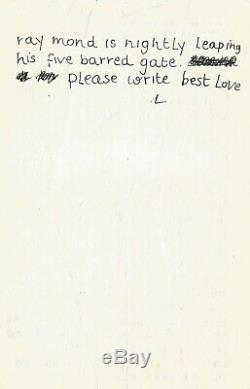 ray mond is nightly leaping
his five barred gate.
please write best love
L
ebay